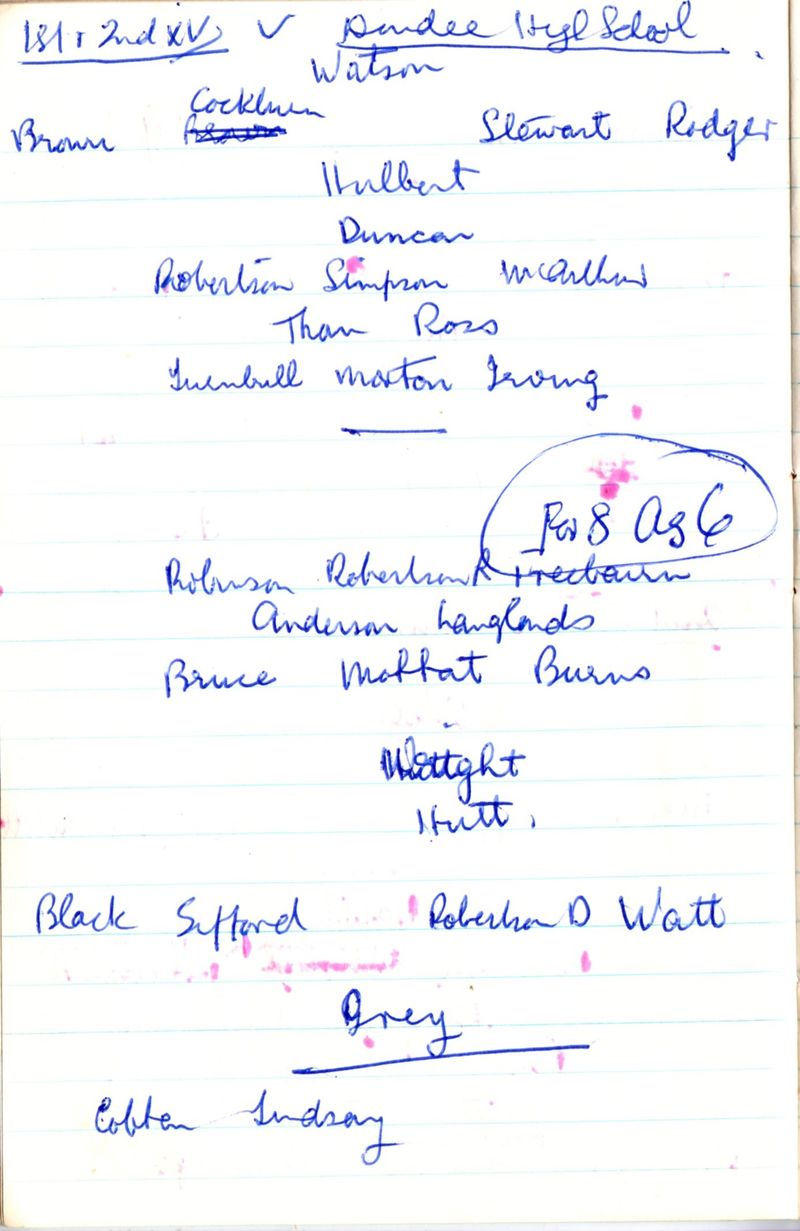 1st + 2nd XV v Dundee High School
Watson
Cockburn
Brown Stewart Rodger
Hulbert
Duncan
Robertson Simpson McArthur
Than Ross
Turnbull Morton Irving
For 8 Ag 6
Robinson Robertson R Freebairn
Anderson Langlands
Bruce Moffat Burns
Hutt.
Black Sifford Robertson D Watt
Grey
Lindsay